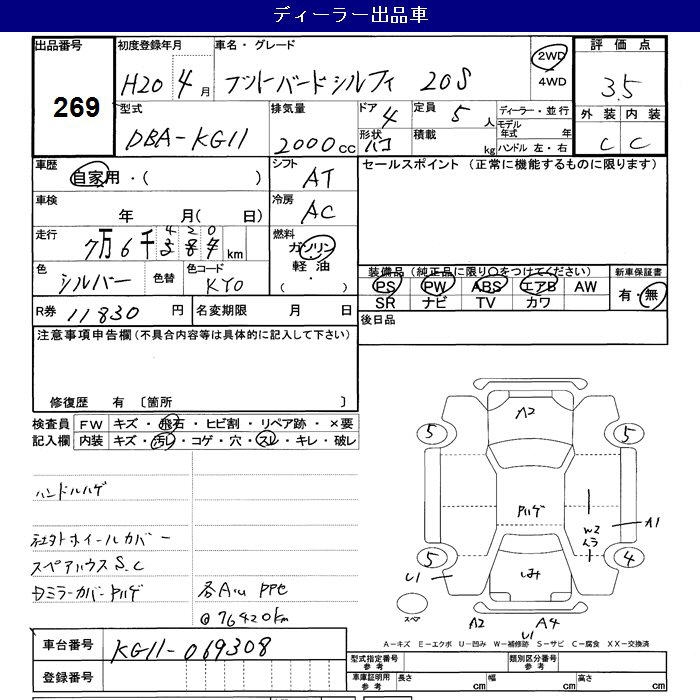 ディーラー出品車
出品番号 初度登録年月 車名・グレード 2WD 評価点
269 H20 4月 ブルーバードシルフィ 20S 4WD 3.5
型式 排気量 ドア 4 定員 5人 ディーラー・並行 外装 内装
DBA-KG11 2000cc 形状 ハコ 積載 kg モデル年式 年 C C
ハンドル 左・右
車歴 シフト セールスポイント (正常に機能するものに限ります)
自家用・( ) AT
車検 冷房
年 月( 日) AC
走行 燃料
7万6千420 387 km ガソリン
軽油
( ・ )
色 色替 色コード
シルバー KY0
装備品(純正品に限り○をつけてください) 新車保証書
PS PW ABS エアB AW 有・無
SR ナビ TV カワ
R券 11830円 名変期限 月 日 後日品
注意事項申告欄(不具合内容等は具体的に記入して下さい)
修復歴 有 〔箇所 〕
検査員 FW キズ・飛石・ヒビ割・リペア跡・×要
記入欄 内装 キズ・汚レ・コゲ・穴・スレ・キレ・破レ
ハンドルハゲ
社外ホイールカバー
スペアハウスS.C
ミラーカバーハゲ
@76420km
A2
5 5
ハゲ
W2
A1
5 4
U1
しみ
スペア
A2 A4
U1
A-キズ E-エクボ U-凹み W-補修跡 S-サビ C-腐食 XX-交換済
車台番号 KG11-069308
登録番号
型式指定番号 参考 類別区分番号 参考
車庫証明用 参考 長さ cm 幅 cm 高さ cm